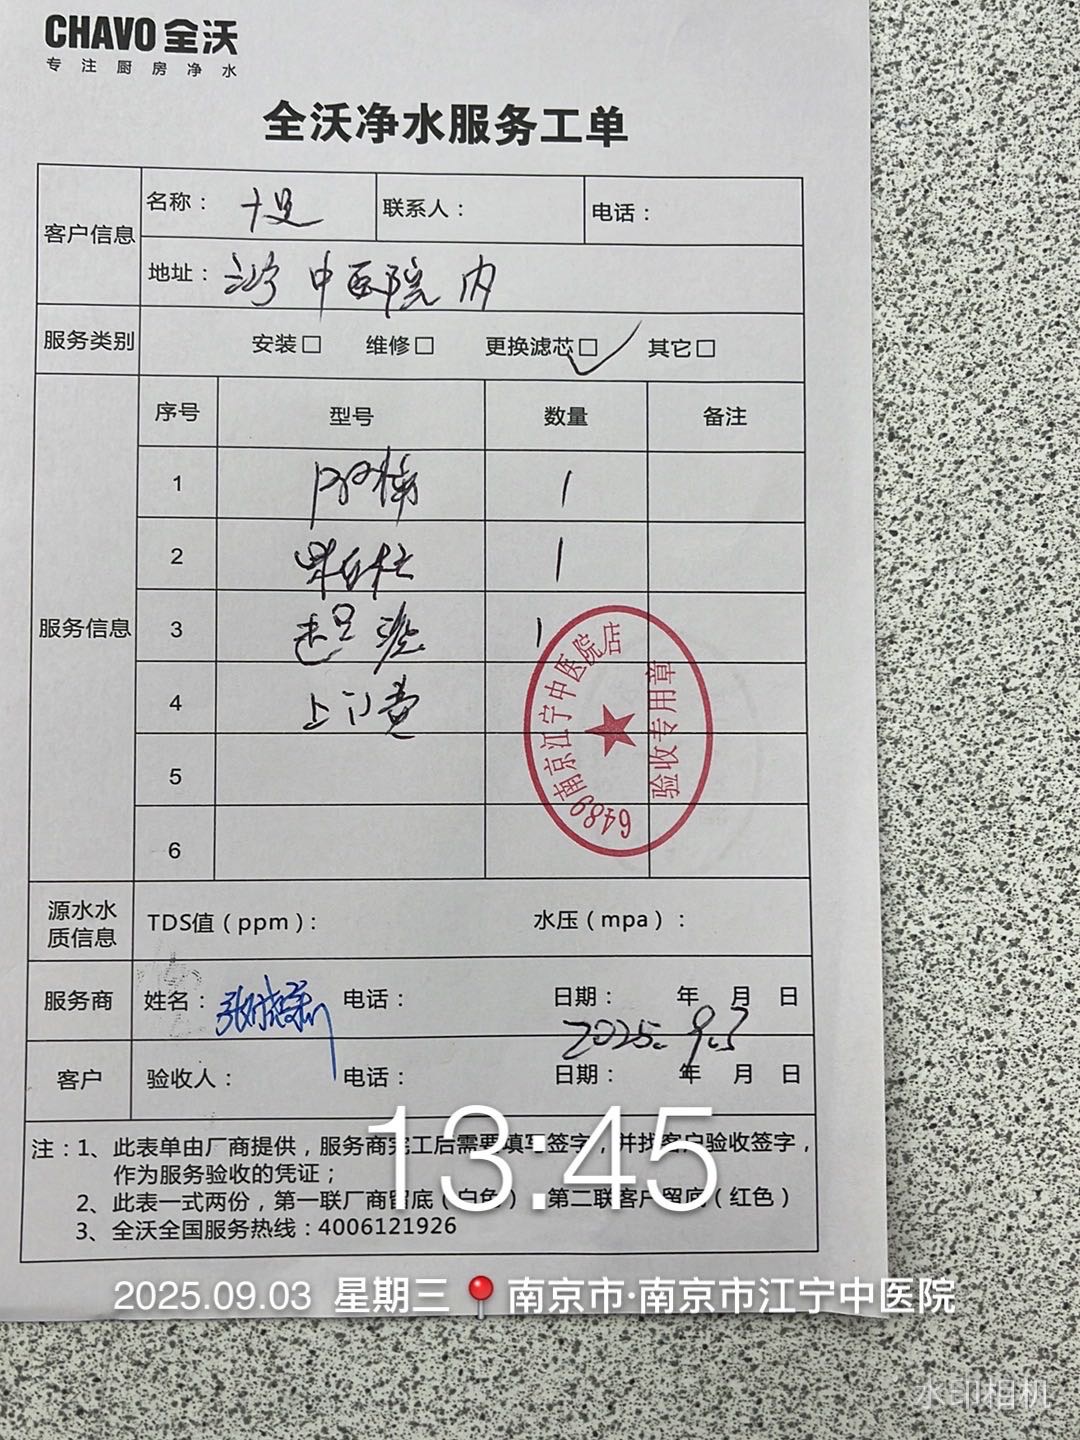 CHAVO 全沃
专注厨房净水
全沃净水服务工单
客户信息
名称： 十足
联系人：
电话：
地址： 江宁中医院内
服务类别
安装□ 维修□ 更换滤芯□✓ 其它□
服务信息
序号 型号 数量 备注
1 阻垢 1
2 1
3 1
4 上门费
5
6
6489南京江宁中医院店
验收专用章
源水水质信息
TDS值（ppm）： 水压（mpa）：
服务商
姓名： 电话： 日期： 年 月 日
2025.9.3
客户
验收人： 电话： 日期： 年 月 日
注：1、此表单由厂商提供，服务商完工后需要填写签字，并找客户验收签字，
作为服务验收的凭证；
2、此表一式两份，第一联厂商留底（白色） 第二联客户留底（红色）
3、全沃全国服务热线：4006121926
13:45
2025.09.03 星期三 南京市·南京市江宁中医院
水印相机